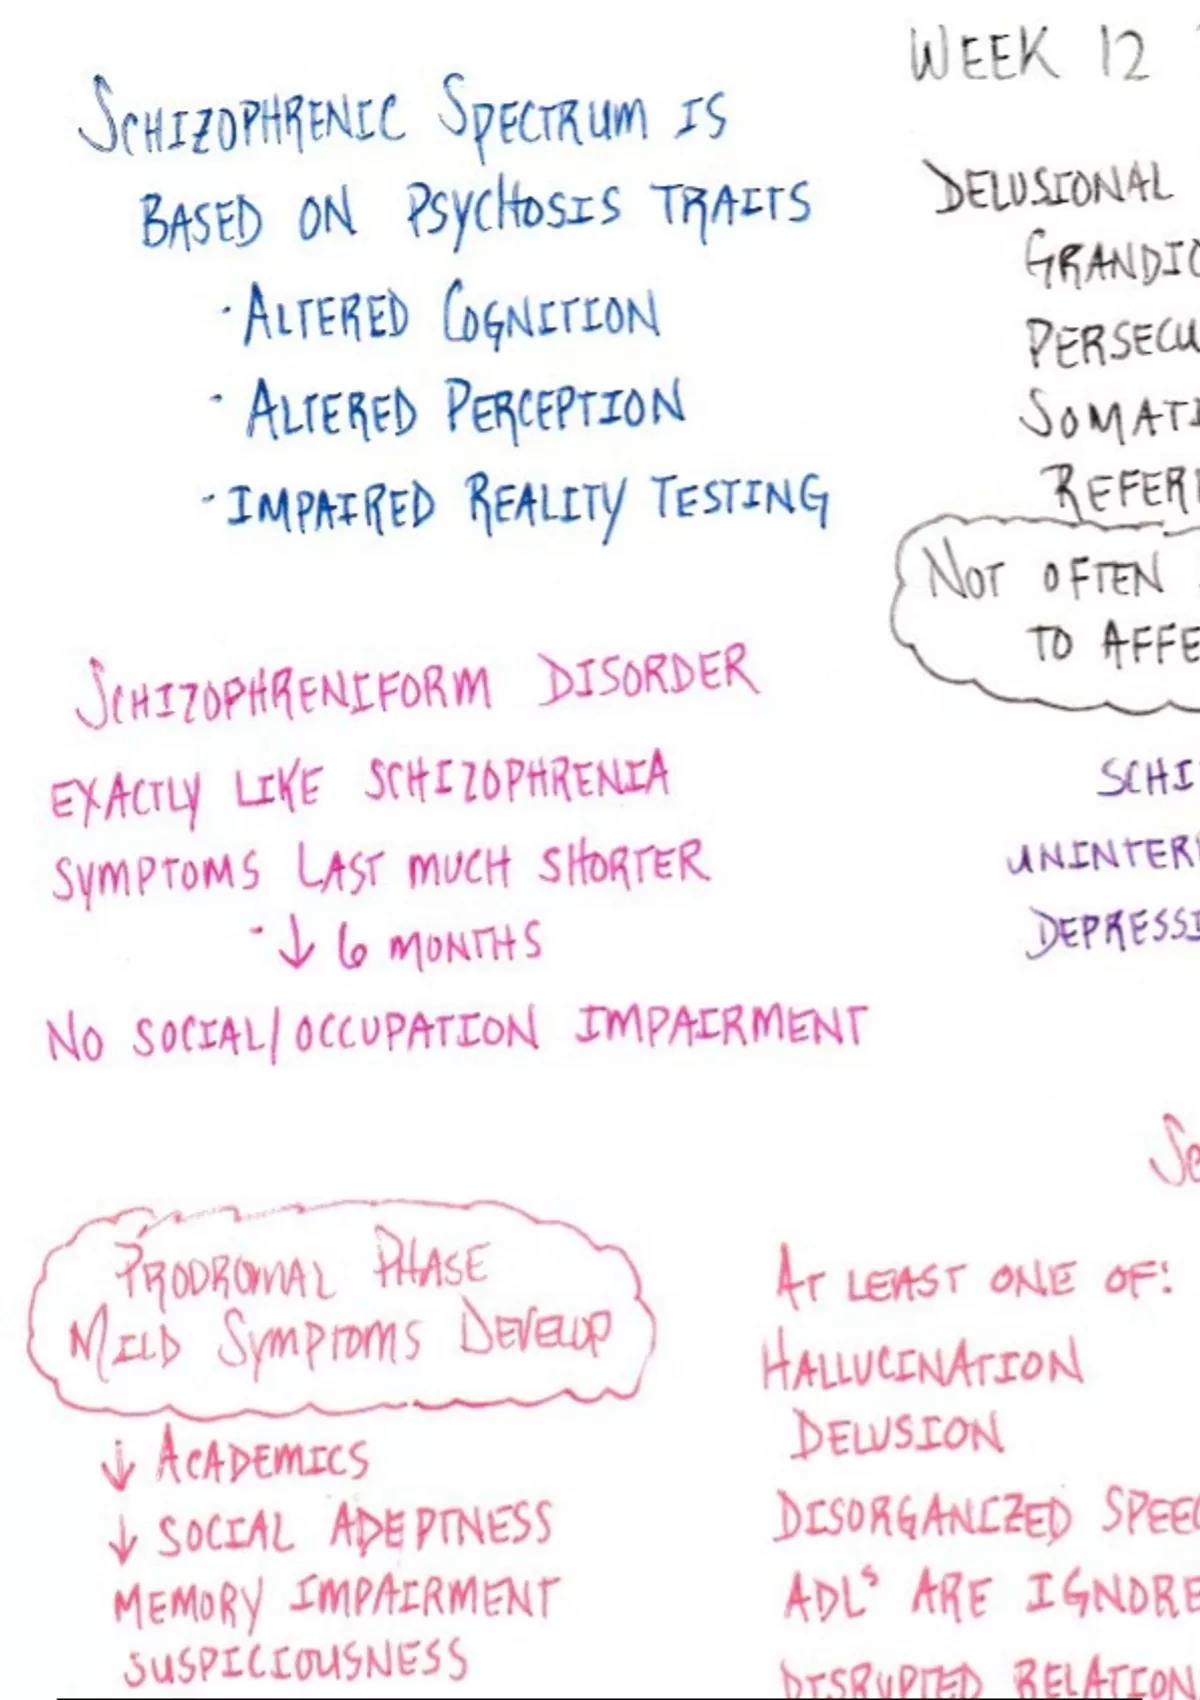 WEEK 12
SCHIZOPHRENIC SPECTRUM IS
BASED ON PSYCHOSIS TRAITS
· ALTERED COGNITION
· ALTERED PERCEPTION
- IMPAIRED REALITY TESTING
DELUSIONAL
GRANDIO
PERSECU
SOMATI
REFERE
NOT OFTEN
TO AFFE
SCHIZOPHRENIFORM DISORDER
EXACTLY LIKE SCHIZOPHRENIA
SYMPTOMS LAST MUCH SHORTER
- ↓ 6 MONTHS
NO SOCIAL/OCCUPATION IMPAIRMENT
SCHI
UNINTER
DEPRESSI
SC
PRODROMAL PHASE
MILD SYMPTOMS DEVELOP
↓ ACADEMICS
↓ SOCIAL ADEPTNESS
MEMORY IMPAIRMENT
SUSPICIOUSNESS
AT LEAST ONE OF:
HALLUCINATION
DELUSION
DISORGANIZED SPEEC
ADLS ARE IGNORE
DISRUPTED RELATION